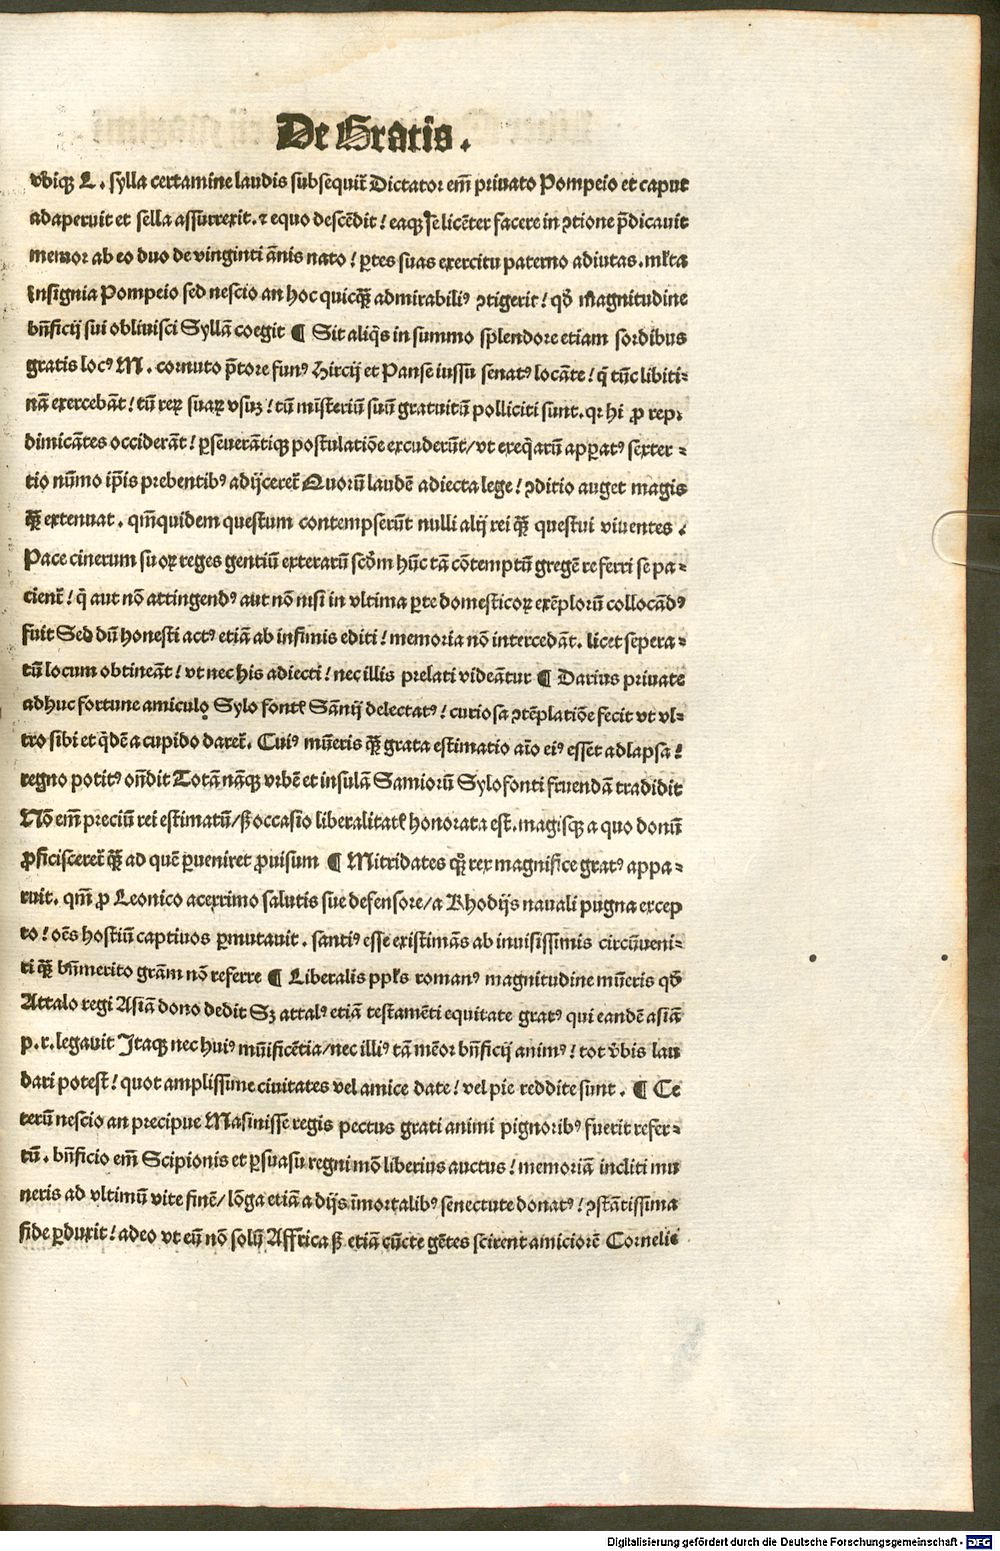 De Gratis.
vbiqꝫ L. sylla certamine laudis subsequit᷑ Dictator em̄ priuato Pompeio et caput
adaperuit et sella assurrexit. ⁊ equo descēdit! eaqꝫ se licēter facere in ꝯtione p̄dicauit
memor ab eo duo de vinginti ānis nato! ꝑtes suas exercitu paterno adiutas. ml̄ta
Insignia Pompeio sed nescio an hoc quicqꝫ̄ admirabiliꝰ ꝯtigerit! qđ magnitudine
bn̄ficij sui obliuisci Syllā coegit ¶ Sit aliq̄s in summo sp̄lendore etiam sordibus
gratis locꝰ M. cornuto p̄tore funꝰ Hircij et Panse iussu senatꝰ locāte! q̄ tūc libiti⸗
nā exercebāt! tū reꝝ suaꝝ vsuꝫ! tū mīsteriū suū gratuitū polliciti sunt. qꝛ hi ꝓ rep.
dimicātes occiderāt! ꝑseuerātiqꝫ postulatiōe excuderūt/ vt exeq̄arū apꝑatꝰ sexter⸗
tio nūmo ip̄is prebentibꝰ adijcereĩ Quorū laudē adiecta lege! ꝯditio auget magis
qꝫ̄ extenuat. qm̄quidem questum contempserūt nulli alij rei qꝫ̄ questui viuentes.
Pace cinerum suoꝝ reges gentiū exterarū scđm hūc tā cōtemptū gregē referri se pa⸗
cient᷑! q̄ aut nō attingendꝰ aut nō nisi in vltima ꝑte domesticoꝝ exēplorū collocādꝰ
fuit Sed dū honesti actꝰ etiā ab infimis editi! memoria nō intercedāt. licet sepera⸗
tū locum obtineāt! vt nec his adiecti! nec illis prelati videātur ¶ Darius priuate
adhuc fortune amiculo Sylo fontꝭ Sānij delectatꝰ! curiosa ꝯtēplatiōe fecit vt vl⸗
tro sibi et q̄dē a cupido daret᷑. Cuiꝰ mūeris qꝫ̄ grata estimatio aīo eiꝰ esset adlapsa!
regno potitꝰ on̄dit Totā nāqꝫ vrbē et insulā Samiorū Sylofonti fruendā tradidit
Nō em̄ preciū rei estimatū/ sꝫ occasio liberalitatꝭ honorata est. magisqꝫ a quo donū
ꝓficisceret᷑ qꝫ̄ ad quē ꝑueniret ꝓuisum ¶ Mitridates qꝫ rex magnifice gratꝰ appa⸗
ruit. qm̄ ꝓ Leonico acerrimo salutis sue defensore/ a Rhodijs nauali pugna excep
to! oēs hostiū captiuos ꝑmutauit. santiꝰ esse existimās ab inuisissimis circūueni⸗
ri qꝫ̄ bn̄merito grām nō referre ¶ Liberalis ppl̄s romanꝰ magnitudine mūeris qđ
Attalo regi Asiā dono dedit Sꝫ attalꝰ etiā testamēti equitate gratꝰ qui eandē asiā
p. r. legauit Itaqꝫ nec huiꝰ mūificētia/ nec illiꝰ tā mēor bn̄ficij animꝰ! tot v̄bis lau
dari potest! quot amplissime ciuitates vel amice date! vel pie reddite sunt. ¶ Ce
terū nescio an precipue Masinisse regis pectus grati animi pignoribꝰ fuerit refer⸗
tū. bn̄ficio em̄ Scipionis et ꝑsuasu regni mō liberius auctus! memoriā incliti mu
neris ad vltimū vite finē/ lōga etiā a dijs īmortalibꝰ senectute donatꝰ! ꝯstātissima
fide ꝑduxit! adeo vt eū nō solū Affrica sꝫ etiā cūcte gētes scirent amiciorē Cornelie
Digitalisierung gefördert durch die Deutsche Forschungsgemeinschaft - DFG